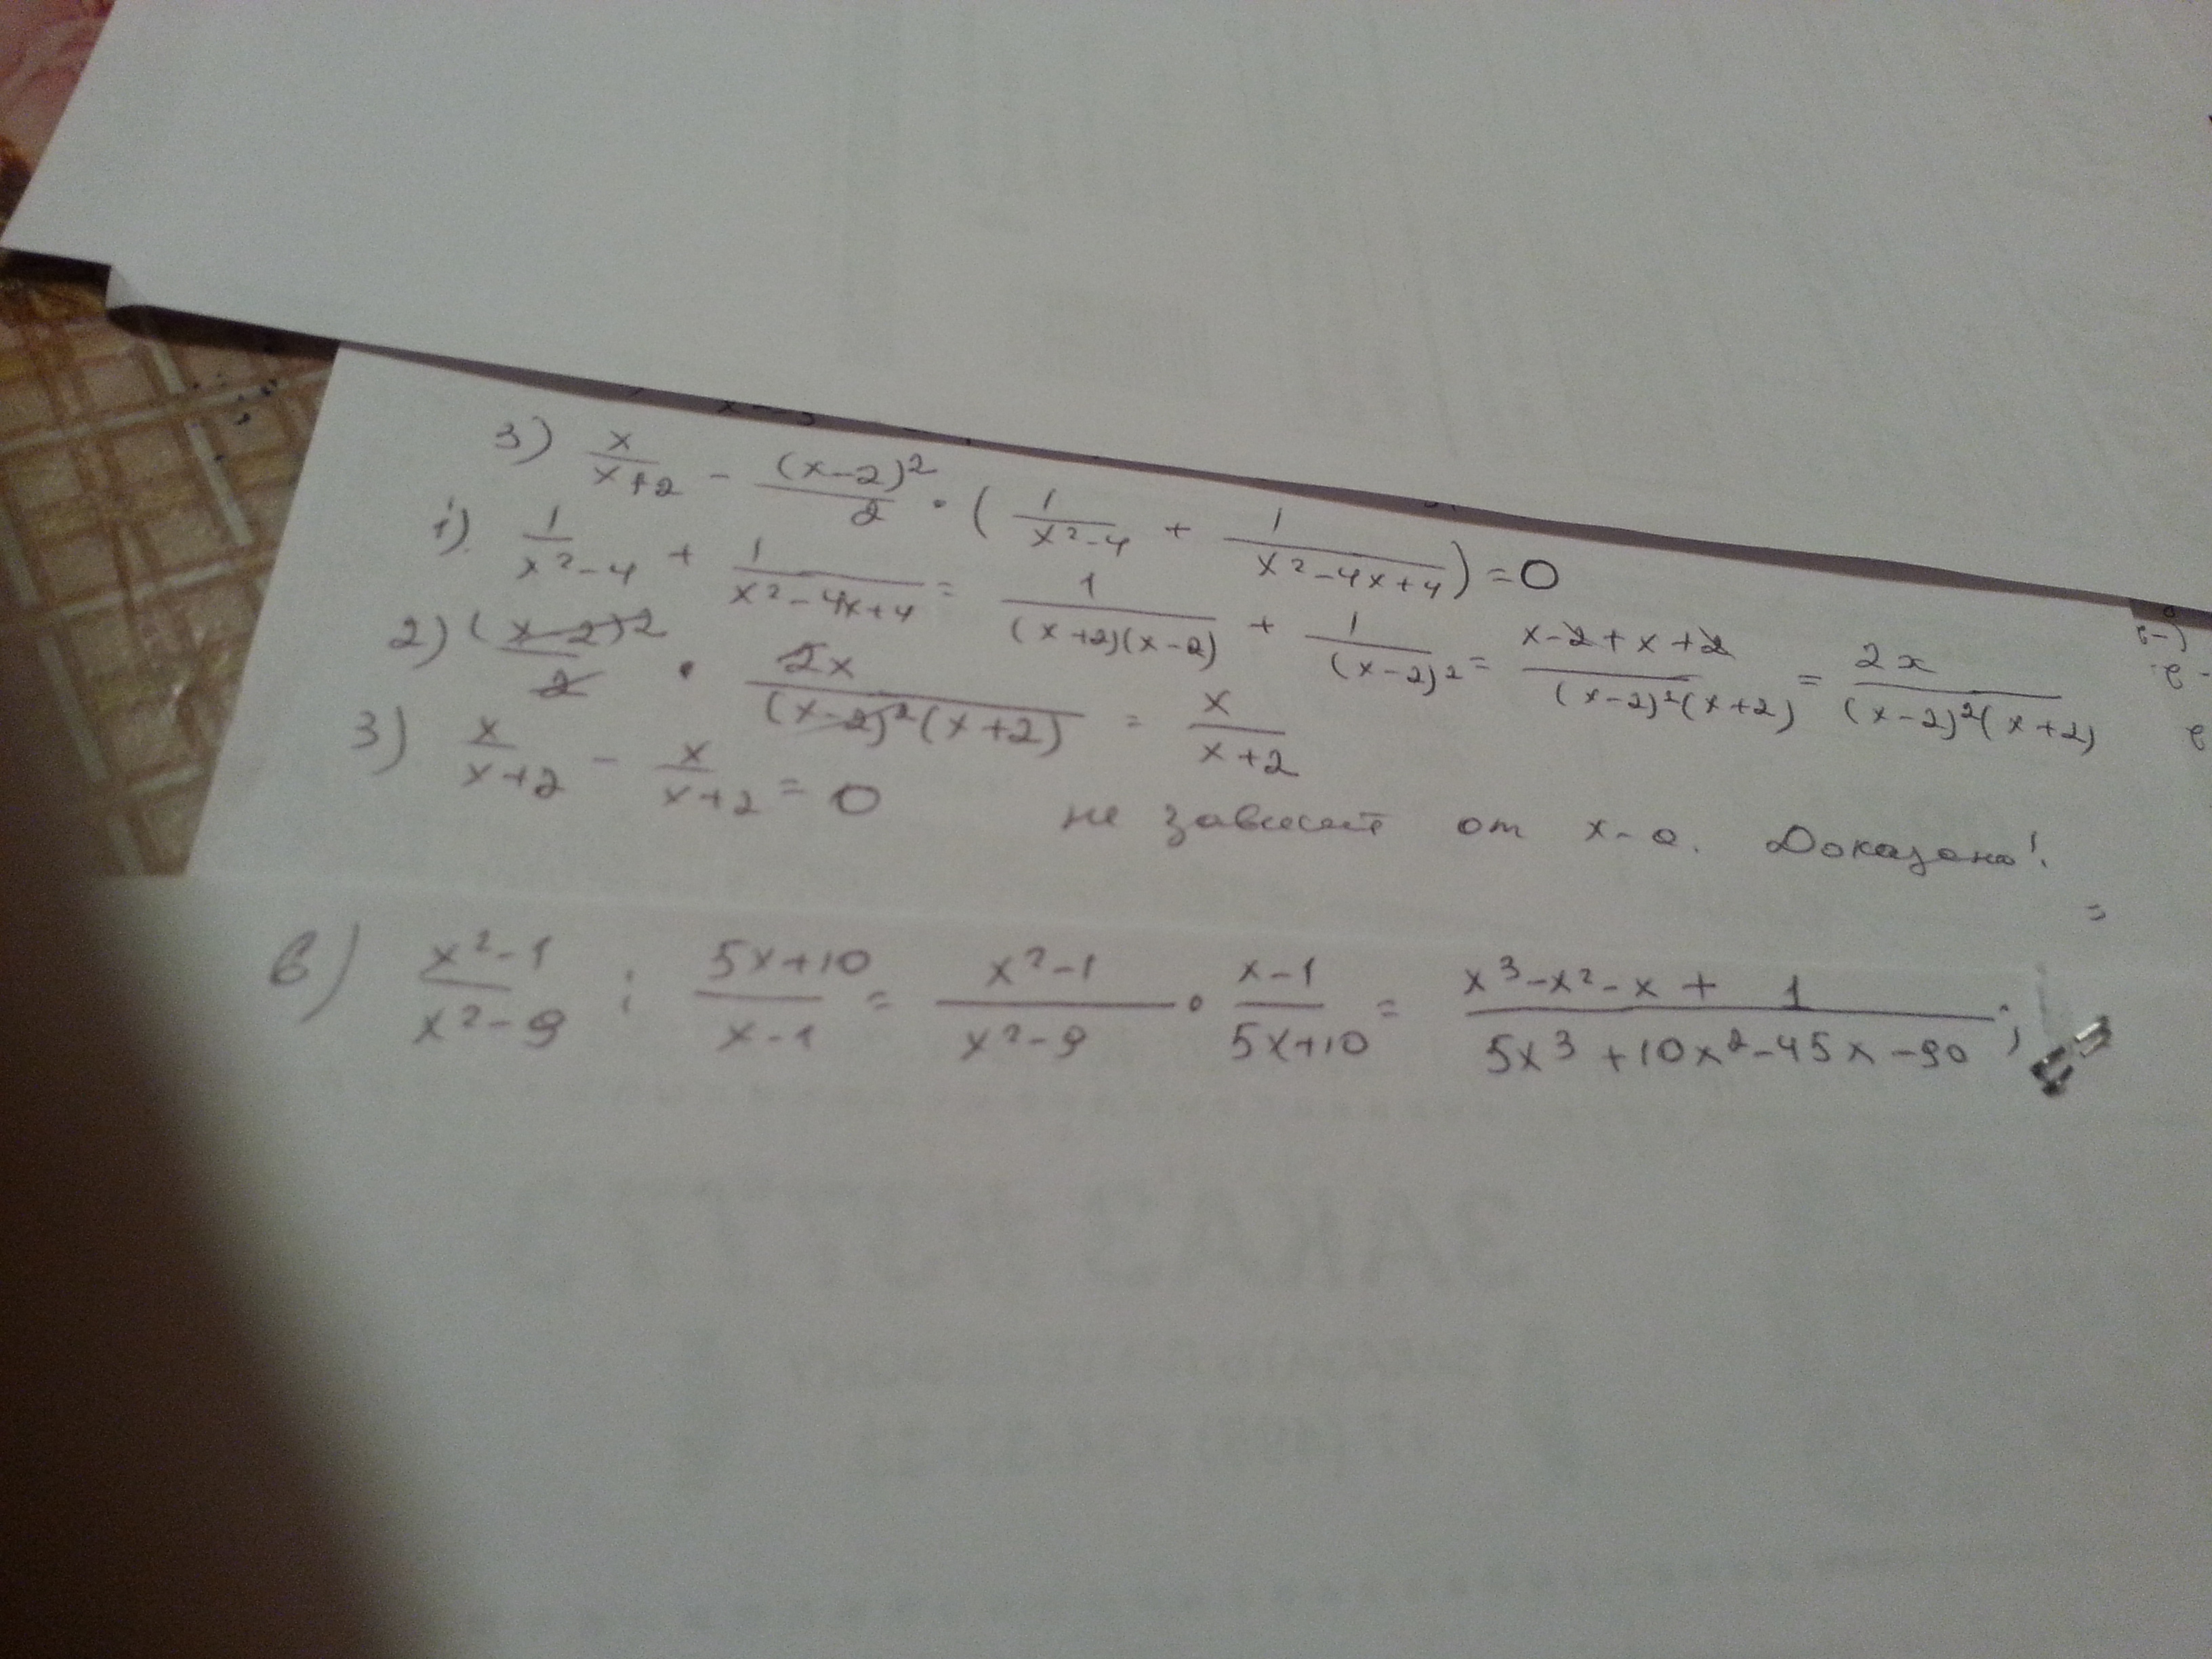 3) x/(x+2) - (x-2)²/2 · (1/(x²-4) + 1/(x²-4x+4)) = 0
1) 1/(x²-4) + 1/(x²-4x+4) = 1/((x+2)(x-2)) + 1/(x-2)² = (x-2+x+2)/((x-2)²(x+2)) = 2x/((x-2)²(x+2))
2) (x-2)²/2 · 2x/((x-2)²(x+2)) = x/(x+2)
3) x/(x+2) - x/(x+2) = 0 не зависит от x-а. Доказано!
=
в) (x²-1)/(x²-9) : (5x+10)/(x-1) = (x²-1)/(x²-9) · (x-1)/(5x+10) = (x³-x²-x+1)/(5x³+10x²-45x-90);